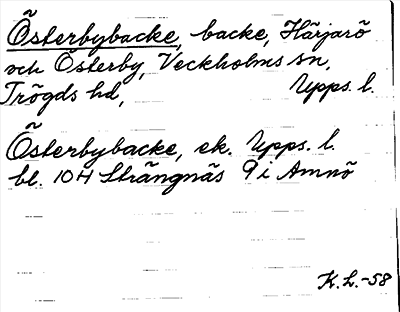 Österbybacke, backe, Härjarö
och Österby, Veckholms sn,
Trögds hd, Upps. l.
Österbybacke, ek. Upps. l.
bl. 10H Strängnäs 9i Amnö
K.L.-58